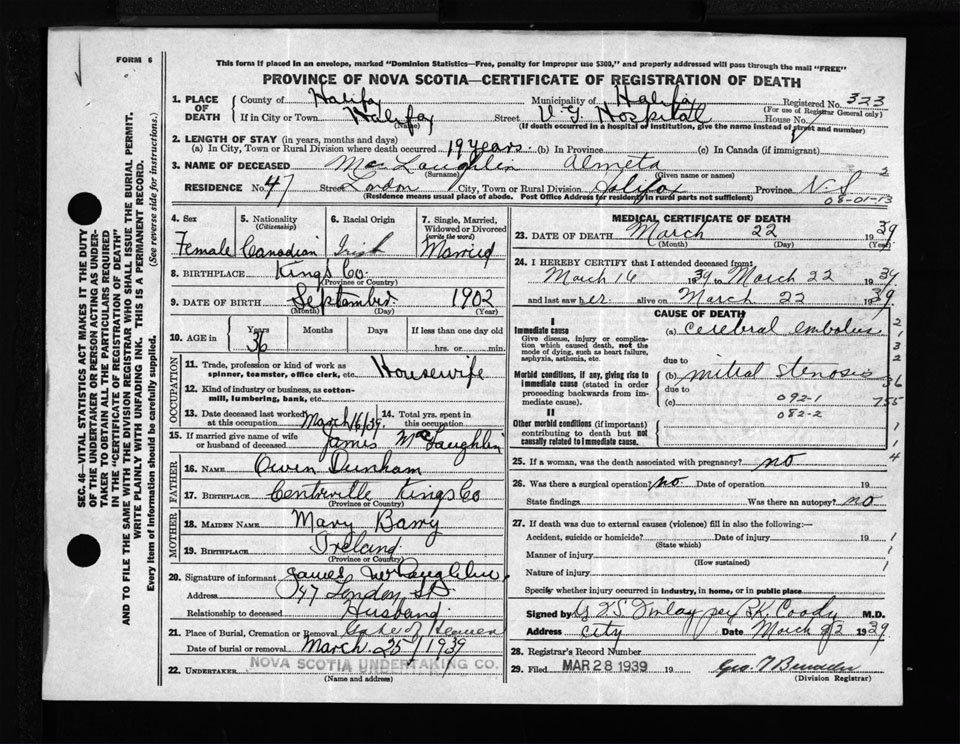 FORM 6
This form if placed in an envelope, marked "Dominion Statistics—Free, penalty for improper use $300," and properly addressed will pass through the mail "FREE"
PROVINCE OF NOVA SCOTIA—CERTIFICATE OF REGISTRATION OF DEATH
1. PLACE OF DEATH County of Halifax Municipality of Halifax Registered No. 323
(For use of Registrar General only)
If in City or Town Halifax Street V.G. Hospital House No.
(Name) (If death occurred in a hospital or institution, give the name instead of street and number)
2. LENGTH OF STAY (in years, months and days)
(a) In City, Town or Rural Division where death occurred 19 years. (b) In Province (c) In Canada (if immigrant)
3. NAME OF DECEASED MacLaughlin Almeta 2
(Surname) (Given name or names)
RESIDENCE No. 47 Street London City, Town or Rural Division Halifax Province N.S
(Residence means usual place of abode. Post Office Address for residents in rural parts not sufficient) 08-01-13
4. Sex Female
5. Nationality (Citizenship) Canadian
6. Racial Origin Irish
7. Single, Married, Widowed or Divorced (write the word) Married
8. BIRTHPLACE Kings Co.
(Province or Country)
9. DATE OF BIRTH September 1902
(Month) (Day) (Year)
10. AGE in Years Months Days If less than one day old
36 hrs. or min.
OCCUPATION
11. Trade, profession or kind of work as spinner, teamster, office clerk, etc. Housewife
12. Kind of industry or business, as cotton-mill, lumbering, bank, etc.
13. Date deceased last worked at this occupation March/16/39. 14. Total yrs. spent in this occupation
15. If married give name of wife or husband of deceased James McLaughlin
FATHER
16. NAME Owen Dunham
17. BIRTHPLACE Centreville Kings Co
(Province or Country)
MOTHER
18. MAIDEN NAME Mary Barry
19. BIRTHPLACE Ireland
(Province or Country)
20. Signature of informant James McLaughlin
Address 47 London St
Relationship to deceased Husband
21. Place of Burial, Cremation or Removal
Date of burial or removal March 25/1939
22. UNDERTAKER NOVA SCOTIA UNDERTAKING CO.
(Name and address)
MEDICAL CERTIFICATE OF DEATH
23. DATE OF DEATH March 22 1939
(Month) (Day) (Year)
24. I HEREBY CERTIFY that I attended deceased from:
March 16 1939 to March 22 1939
and last saw her alive on March 22 1939.
CAUSE OF DEATH
I
Immediate cause (a) cerebral embolus
Give disease, injury or complication which caused death, not the mode of dying, such as heart failure, asphyxia, asthenia, etc.
due to
Morbid conditions, if any, giving rise to immediate cause (stated in order proceeding backwards from immediate cause). (b) mitral stenosis
due to
(c) 092-1
082-2
II
Other morbid conditions (if important) contributing to death but not causally related to immediate cause.
2
1
3
2
36
755
1
1
4
25. If a woman, was the death associated with pregnancy? no
26. Was there a surgical operation? no. Date of operation 19
State findings Was there an autopsy? no
27. If death was due to external causes (violence) fill in also the following:—
Accident, suicide or homicide? Date of injury 19 1
(State which)
Manner of injury 1
(How sustained)
Nature of injury 1
Specify whether injury occurred in industry, in home, or in public place
Signed by Finlay per Coady M.D.
Address City Date March 22 1939
28. Registrar's Record Number
29. Filed MAR 28 1939 19 Geo.
(Division Registrar)
SEC. 46—VITAL STATISTICS ACT MAKES IT THE DUTY
OF THE UNDERTAKER OR PERSON ACTING AS UNDER-
TAKER TO OBTAIN ALL THE PARTICULARS REQUIRED
IN THE "CERTIFICATE OF REGISTRATION OF DEATH"
AND TO FILE THE SAME WITH THE DIVISION REGISTRAR WHO SHALL ISSUE THE BURIAL PERMIT.
WRITE PLAINLY WITH UNFADING INK. THIS IS A PERMANENT RECORD.
Every item of information should be carefully supplied. (See reverse side for instructions.)